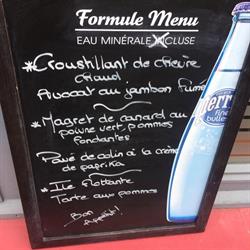 Formule Menu
EAU MINÉRALE INCLUSE
*Croustillant de chèvre
chaud
Avocat au jambon fumé
*Magret de canard au
poivre vert, pommes
fondantes
Pavé de colin à la crème
de paprika
*Ile flottante
Tarte aux pommes
Bon
Appétit!
Perri
fine
bulles